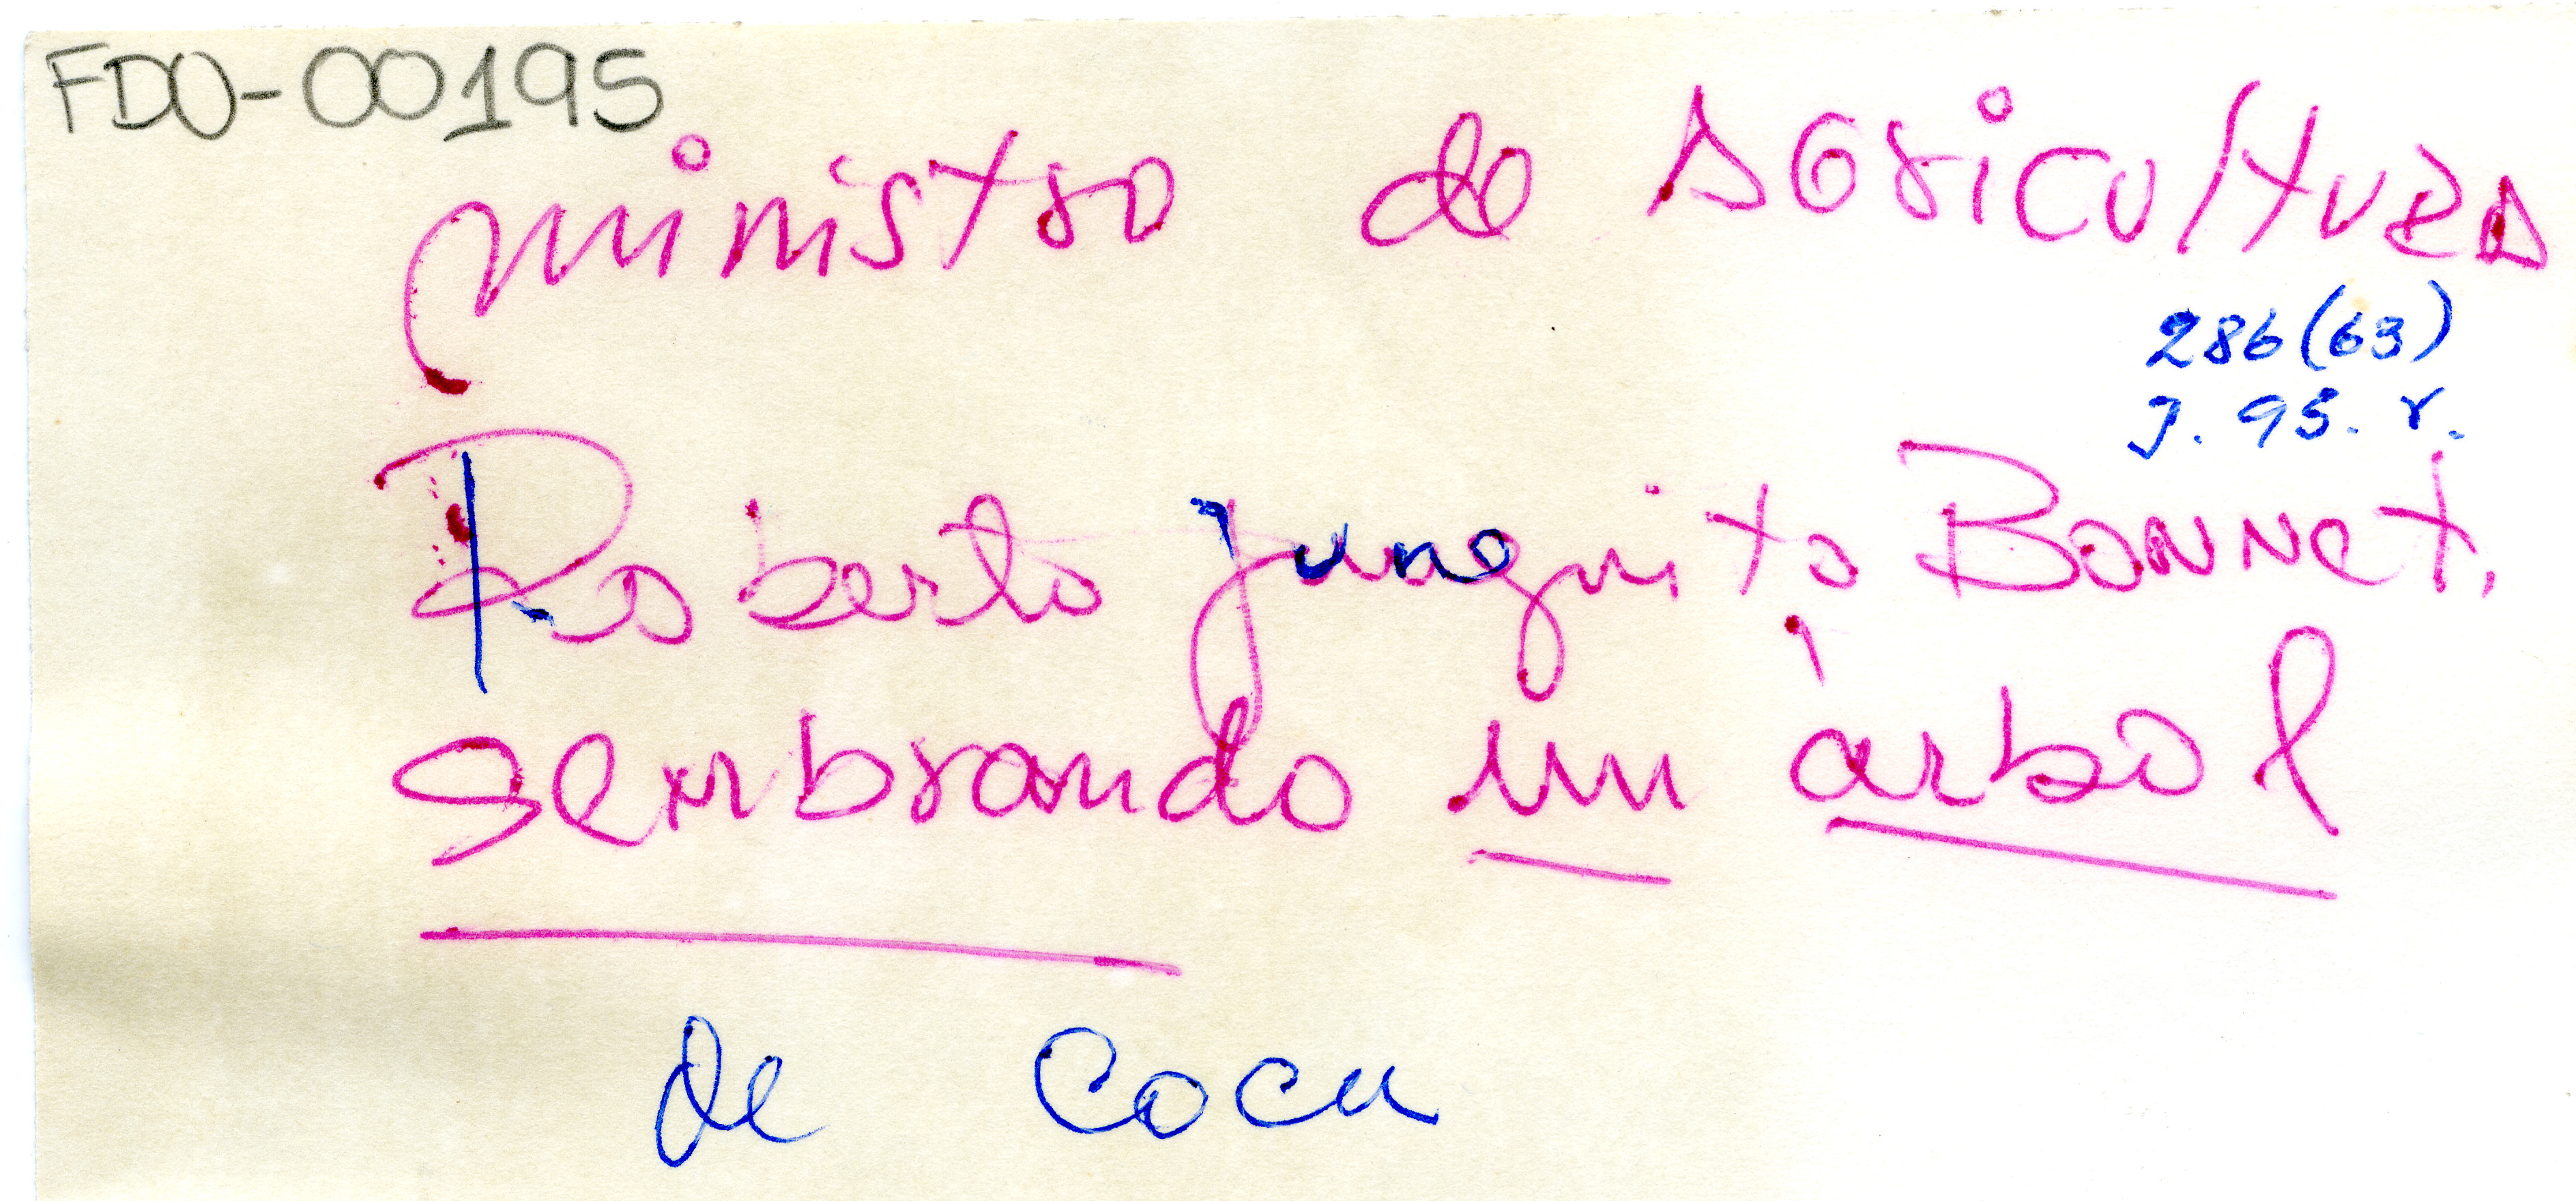 FDO-00195
ministro de AGriCUltURA
286 (63)
J. 95. r.
Roberto junguito BONNet,
sembrando un árbol
de Coca